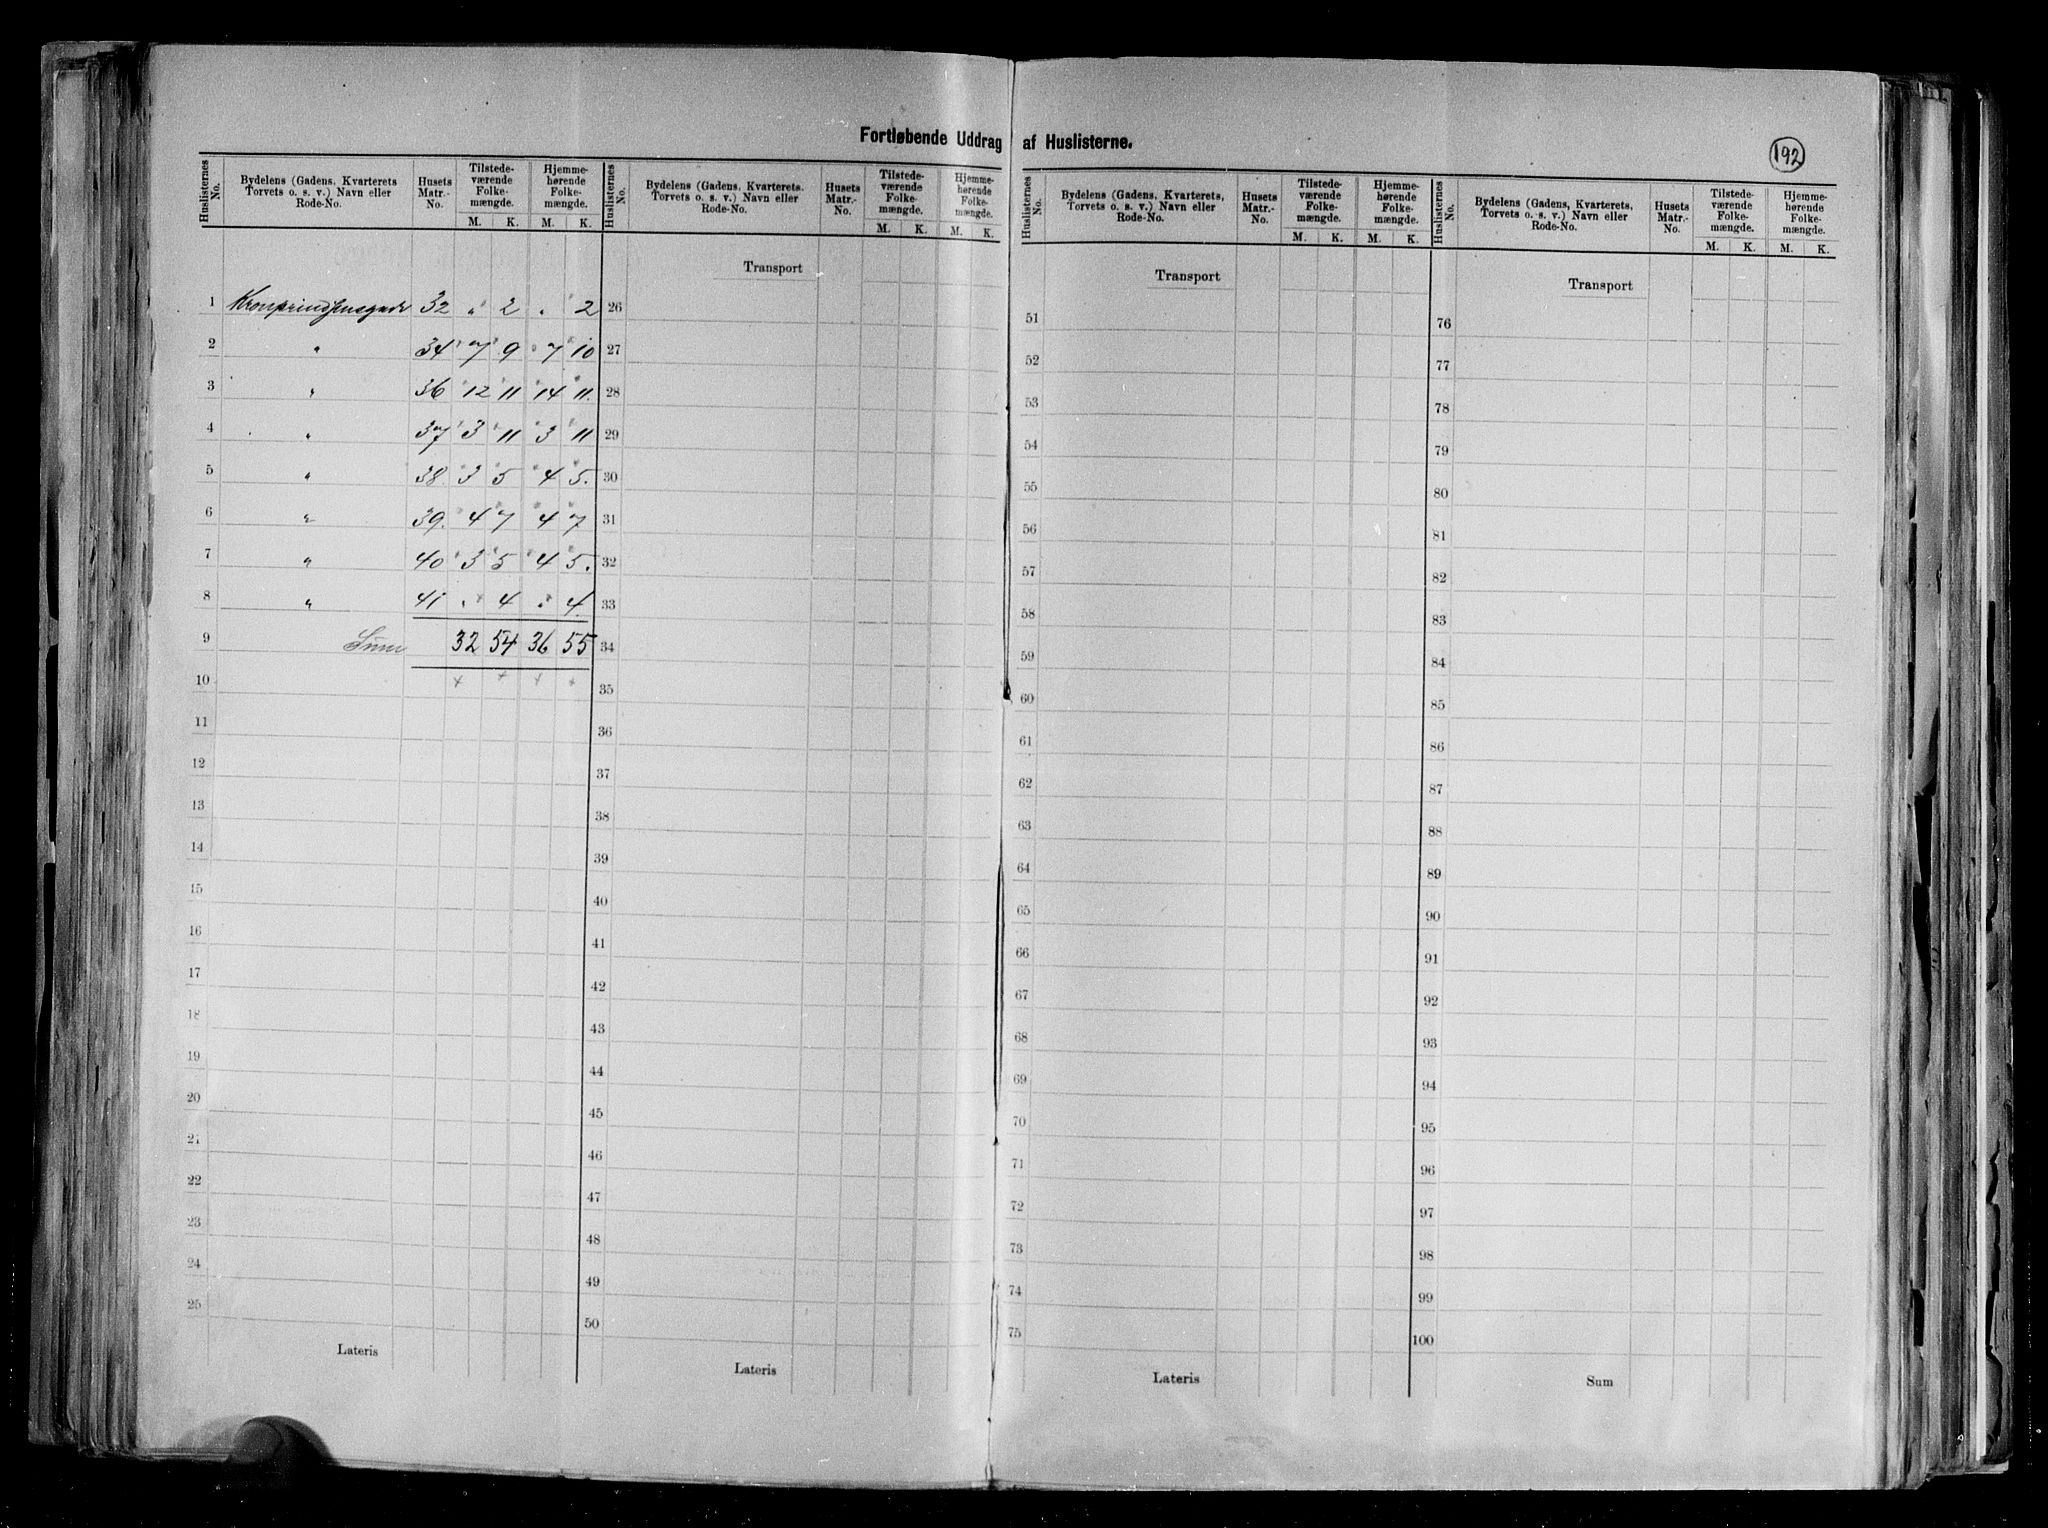 Fortløbende Uddrag af Huslisterne.
192
Huslisternes No. | Bydelens (Gadens, Kvarterets Torvets o. s. v.) Navn eller Rode-No. | Husets Matr.-No. | Tilstedeværende Folkemængde. M. K. | Hjemmehørende Folkemængde. M. K.
1 Kronprindsensgade 32 " 2 " 2
2 " 34 7 9 7 10
3 " 36 12 11 14 11.
4 " 37 3 11 3 11
5 " 38. 3 5 4 5.
6 " 39. 4 7 4 7
7 " 40 3 5 4 5.
8 " 41 " 4 " 4.
9 Sum 32 54 36 55
10
11
12
13
14
15
16
17
18
19
20
21
22
23
24
25
Lateris
Huslisternes No. | Bydelens (Gadens, Kvarterets, Torvets o. s. v.) Navn eller Rode-No. | Husets Matr.-No. | Tilstedeværende Folkemængde. M. K. | Hjemmehørende Folkemængde. M. K.
Transport
26
27
28
29
30
31
32
33
34
35
36
37
38
39
40
41
42
43
44
45
46
47
48
49
50
Lateris
Huslisternes No. | Bydelens (Gadens, Kvarterets, Torvets o. s. v.) Navn eller Rode-No. | Husets Matr.-No. | Tilstedeværende Folkemængde. M. K. | Hjemmehørende Folkemængde. M. K.
Transport
51
52
53
54
55
56
57
58
59
60
61
62
63
64
65
66
67
68
69
70
71
72
73
74
75
Lateris
Huslisternes No. | Bydelens (Gadens, Kvarterets, Torvets o. s. v.) Navn eller Rode-No. | Husets Matr.-No. | Tilstedeværende Folkemængde. M. K. | Hjemmehørende Folkemængde. M. K.
Transport
76
77
78
79
80
81
82
83
84
85
86
87
88
89
90
91
92
93
94
95
96
97
98
99
100
Sum